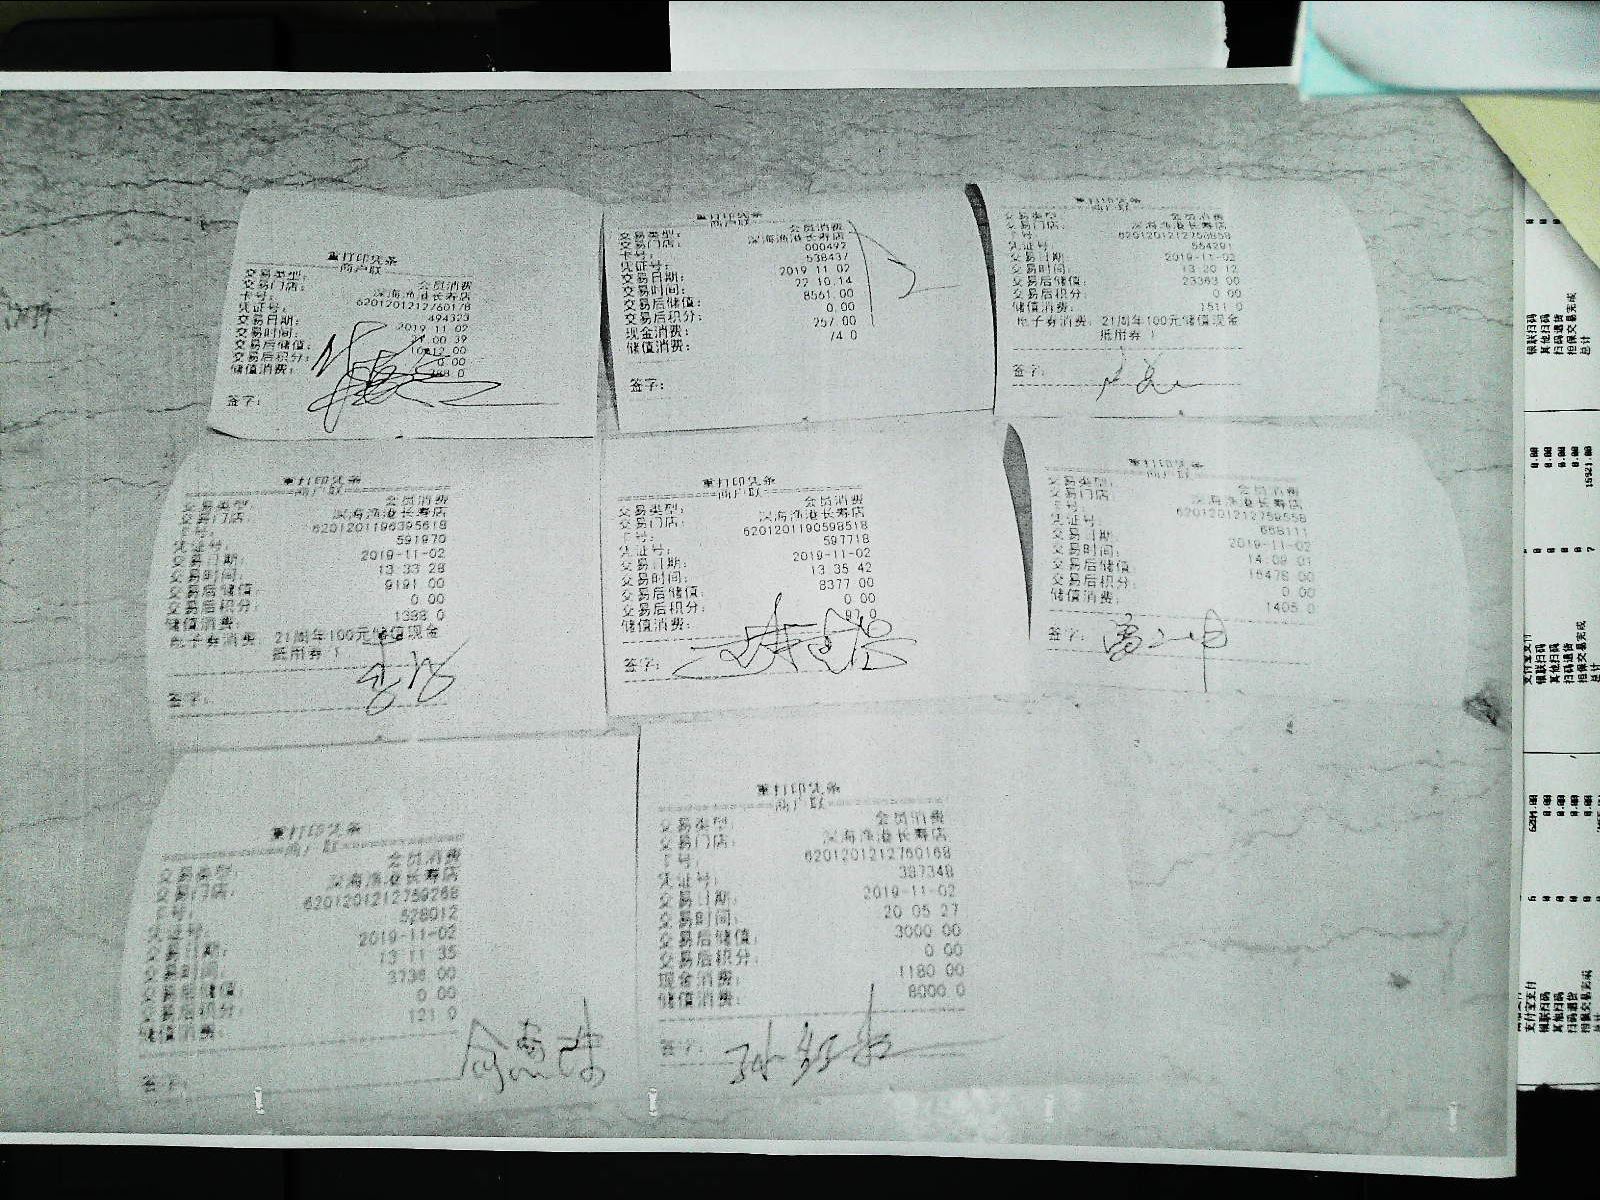 重打印凭条
商户联
交易类型: 会员消费
交易门店: 深海渔港长寿店
卡号: 6201201212760178
凭证号: 494323
交易日期: 2019 11 02
交易时间: 00 39
交易后储值: 00
交易后积分: 00
储值消费:
签字:
重打印凭条
商户联
交易类型: 会员消费
交易门店: 深海渔港长寿店
卡号: 000492
凭证号: 538437
交易日期: 2019 11 02
交易时间: 22 10.14
交易后储值: 8561.00
交易后积分: 0.00
现金消费: 257.00
储值消费: 74 0
签字:
重打印凭条
商户联
交易类型 会员消费
交易门店: 深海渔港长寿店
卡号: 6201201212758858
凭证号: 554291
交易日期: 2019-11-02
交易时间: 13 20 12
交易后储值: 23363 00
交易后积分: 0 00
储值消费: 1511 0
电子券消费: 21周年100元储值现金
抵用券 1
签字:
重打印凭条
商户联
交易类型: 会员消费
交易门店: 深海渔港长寿店
卡号: 6201201196395618
凭证号: 591970
交易日期: 2019-11-02
交易时间: 13 33 28
交易后储值: 9191 00
交易后积分: 0 00
储值消费: 1388 0
电子券消费 21周年100元储值现金
抵用券 1
签字:
重打印凭条
商户联
交易类型: 会员消费
交易门店: 深海渔港长寿店
卡号: 6201201190598518
凭证号: 597718
交易日期: 2019-11-02
交易时间: 13 35 42
交易后储值: 8377 00
交易后积分: 0 00
储值消费:
签字:
重打印凭条
商户联
交易类型: 会员消费
交易门店: 深海渔港长寿店
卡号: 6201201212758558
凭证号: 668111
交易日期: 2019-11-02
交易时间: 14 09 01
交易后储值: 16478 00
交易后积分: 0 00
储值消费: 1405 0
签字:
重打印凭条
商户联
交易类型: 会员消费
交易门店: 深海渔港长寿店
卡号: 6201201212759268
凭证号: 528012
交易日期: 2019-11-02
交易时间: 13 11 35
交易后储值: 3736 00
交易后积分: 0 00
储值消费: 121 0
签字:
重打印凭条
商户联
交易类型: 会员消费
交易门店: 深海渔港长寿店
卡号: 6201201212760168
凭证号: 387348
交易日期: 2019-11-02
交易时间: 20 05 27
交易后储值: 3000 00
交易后积分: 0 00
现金消费: 1180 00
储值消费: 8000 0
签字:
银联扫码
其他扫码
扫码退货
担保交易完成
总计
支付宝支付
银联扫码
其他扫码
扫码退货
担保交易完成
总计
支付宝支付
银联扫码
其他扫码
扫码退货
担保交易完成